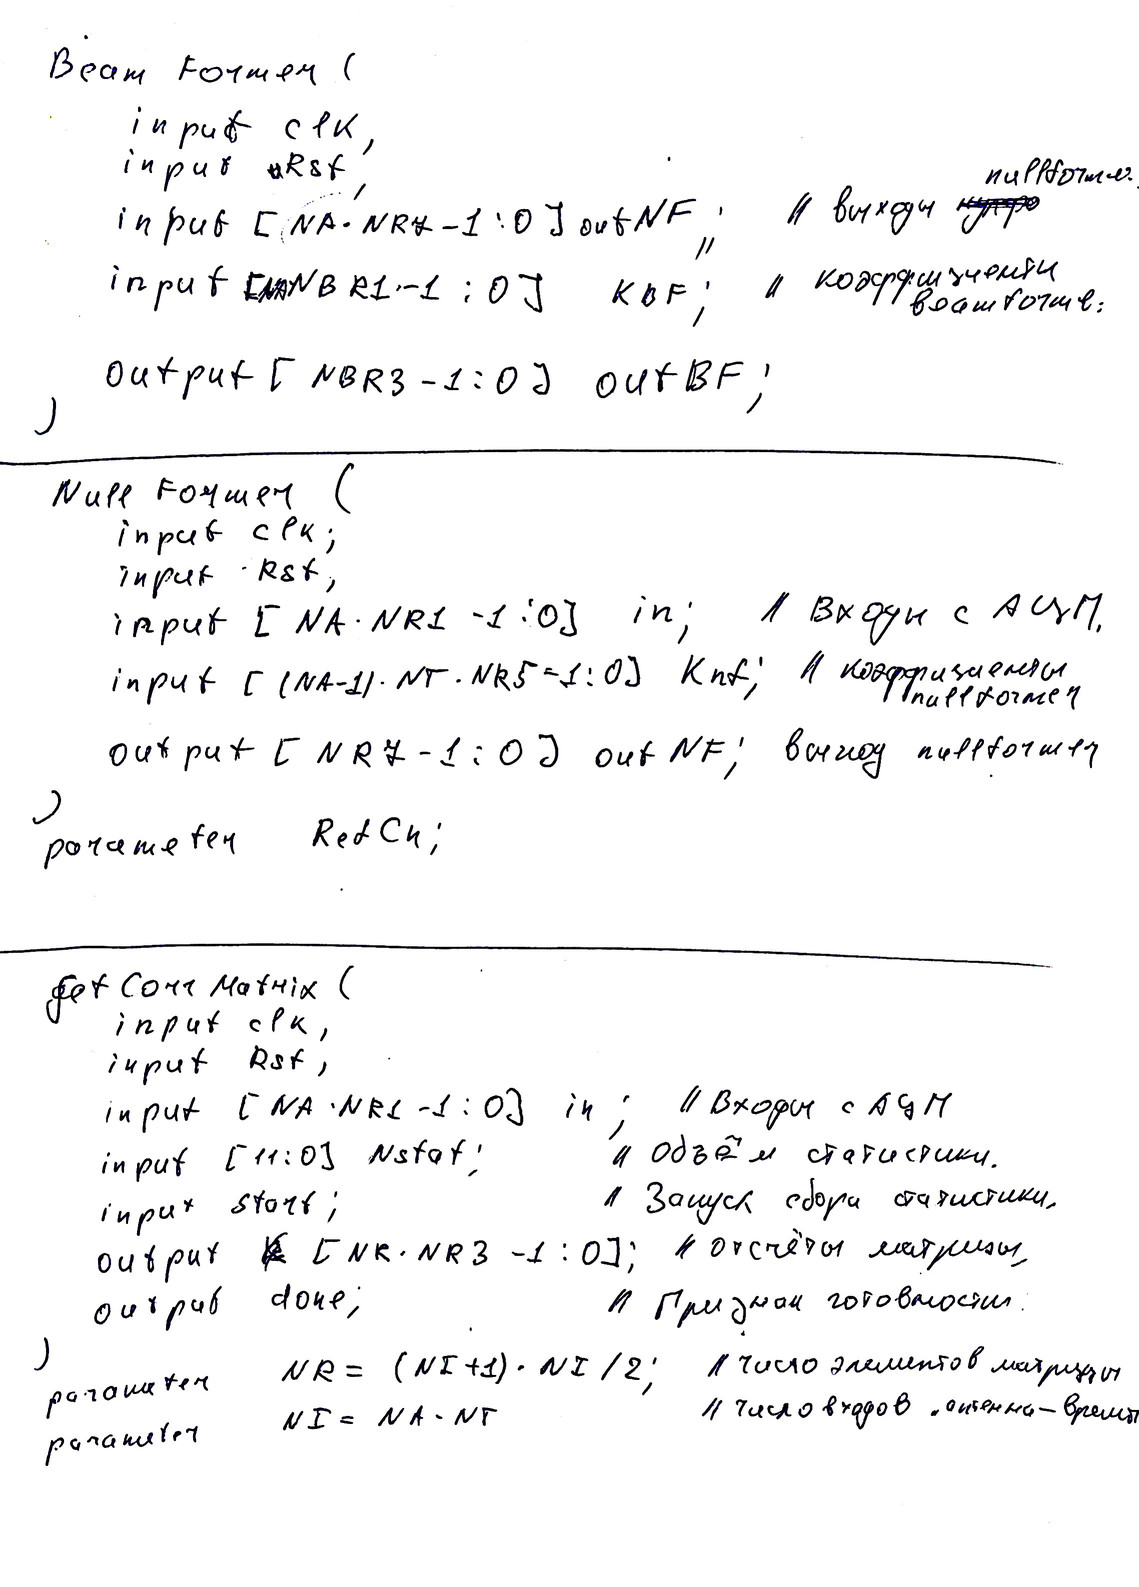 Beam Former (
input clk,
input Rst,
input [NA·NR7-1:0] outNF; // выходы nullforme.
input [NANBR1-1:0] KBF; // коэффициенты beamforme.
output [NBR3-1:0] outBF;
)
Null Former (
input clk;
input Rst,
input [NA·NR1-1:0] in; // Входы с АЦП.
input [(NA-1)·NT·NR5-1:0] Knf; // коэффициенты nullformer
output [NR7-1:0] outNF; выход nullformer
)
parameter RefCh;
get Corr Matrix (
input clk,
input Rst,
input [NA·NR1-1:0] in; // Входы с АЦП
input [11:0] Nstat; // Объём статистики.
input start; // Запуск сбора статистики.
output [NR·NR3-1:0]; // отсчёты матрицы,
output done; // Признак готовности.
)
parameter NR = (NI+1)·NI/2; // число элементов матрицы
parameter NI = NA·NT // число входов антенна-время